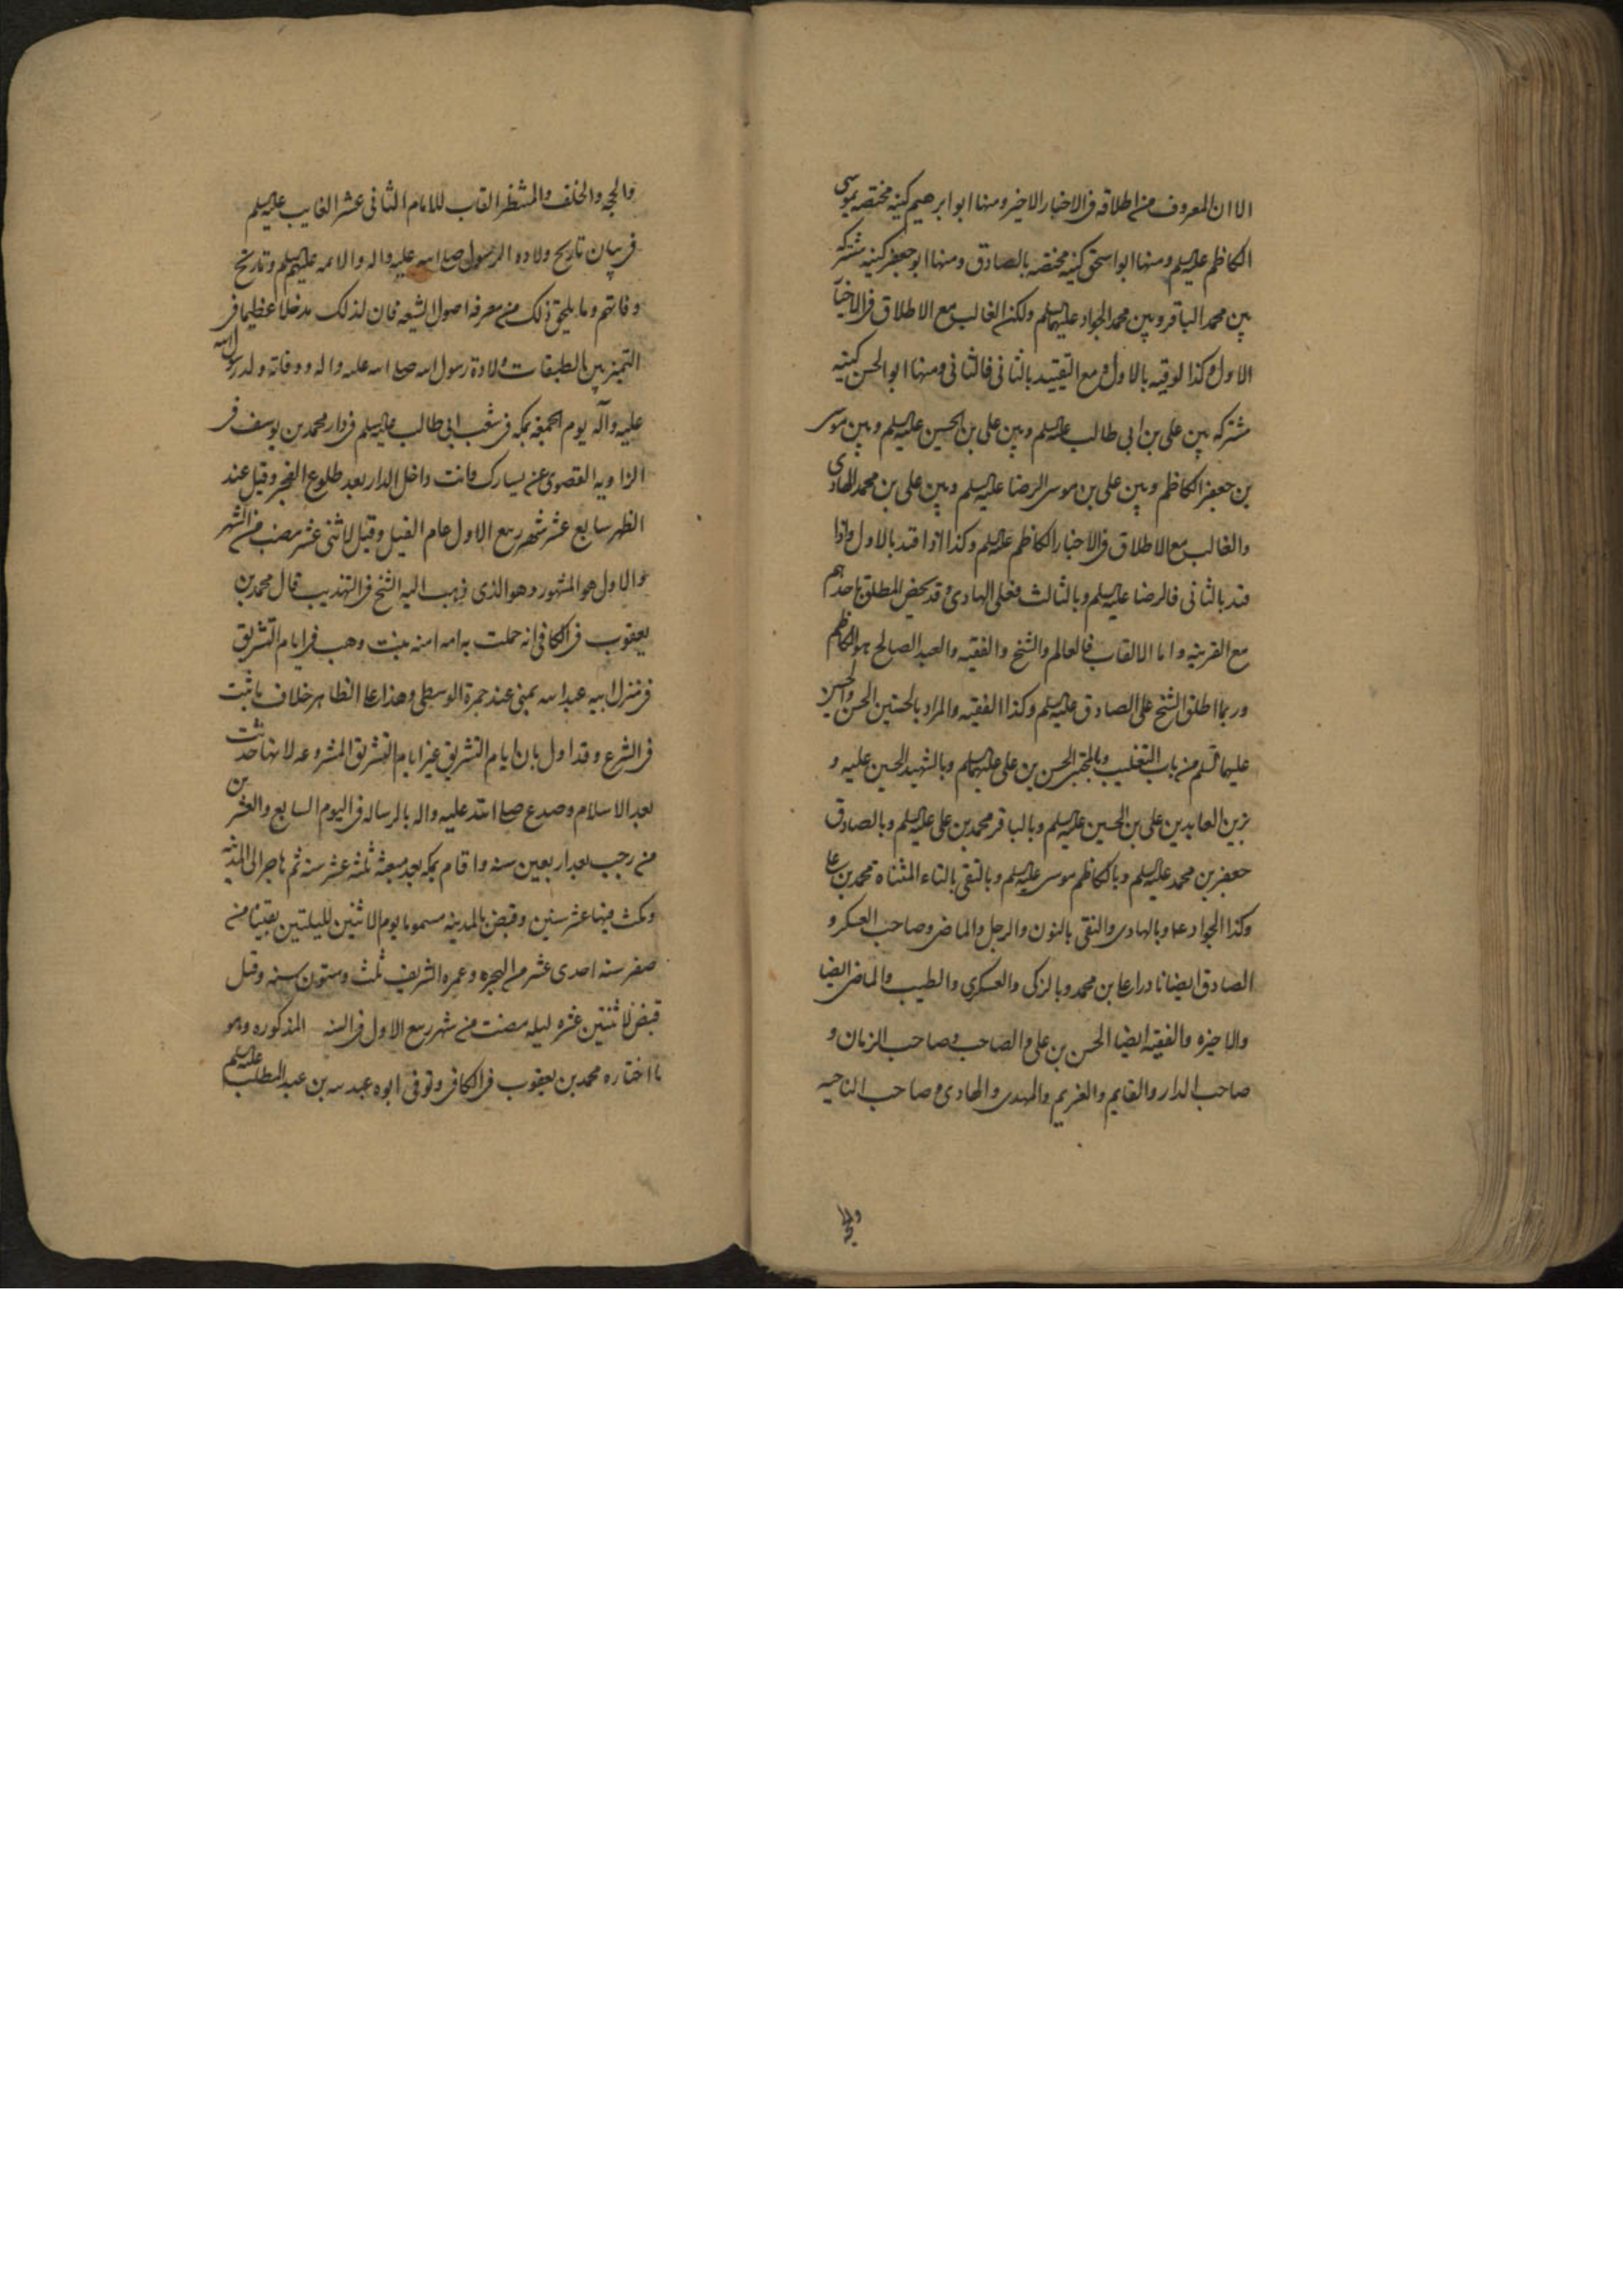 الا ان المعروف من اطلاقه فى الاخبار الاخير ومنها ابو ابرهيم كنيه مختصه بموسى
الكاظم عليه السلم ومنها ابو اسحق كنيه مختصه بالصادق ومنها ابو جعفر كنيه مشتركه
بين محمد الباقر وبين محمد الجواد عليهما السلم ولكن الغالب مع الاطلاق فى الاخبا
الاول وكذا لو قيد بالاول ومع التقييد بالثانى فالثانى ومنها ابو الحسن كنيه
مشتركه بين على بن ابى طالب عليه السلم وبين على بن الحسين عليه السلم وبين موسى
بن جعفر الكاظم وبين على بن موسى الرضا عليه السلم وبين على بن محمد الهادى
والغالب مع الاطلاق فى الاخبار الكاظم عليه السلم وكذا اذا قيد بالاول واذا
قيد بالثانى فالرضا عليه السلم وبالثالث فعلى الهادى وقد يخص المطلق باحدهم
مع القرينه واما الالقاب فالعالم والشيخ والفقيه والعبد الصالح هو الكاظم
وربما اطلق الشيخ على الصادق عليه السلم وكذا الفقيه والمراد بالحسنين الحسن والحسين
عليهما السلم من باب التغليب وبالمجتبى الحسن بن على عليهما السلم وبالشهيد الحسين عليه و
بزين العابدين على بن الحسين عليه السلم وبالباقر محمد بن على عليه السلم وبالصادق
جعفر بن محمد عليه السلم وبالكاظم موسى عليه السلم وبالتقى بالتاء المثناه محمد بن على
وكذا الجواد وبالهادى والنقى بالنون والرجل والماضى وصاحب العسكر و
الصادق ايضا نادرا على بن محمد وبالزكى والعسكرى والطيب والماضى ايضا
والاخيره والفقيه ايضا الحسن بن على والصاحب وصاحب الزمان و
صاحب الدار والقايم والغريم والمهدى والهادى وصاحب الناحيه
والحجه
والحجه والخلف والمنتظر القاب للامام الثانى عشر الغايب عليه السلم
فى بيان تاريخ ولاده الرسول صلى الله عليه واله والائمه عليهم السلم وتاريخ
وفاتهم وما يلحق ذلك من معرفه اصول الشيعه فان لذلك مدخلا عظيما فى
التميز بين الطبقات ولادة رسول الله صلى الله عليه واله ووفاته ولد رسول الله
عليه وآله يوم الجمعه بمكه فى شعب ابى طالب عليه السلم فى دار محمد بن يوسف فى
الزاويه القصوى عن يسارك وانت داخل الدار بعد طلوع الفجر وقيل عند
الظهر سابع عشر شهر ربيع الاول عام الفيل وقيل لاثنى عشر مضت من الشهر
والاول هو المشهور وهو الذى ذهب اليه الشيخ فى التهذيب قال محمد بن
يعقوب فى الكافى انه حملت به امه امنه بنت وهب فى ايام التشريق
فى منزل ابيه عبد الله بمنى عند جمرة الوسطى وهذا على الظاهر خلاف ما ثبت
فى الشرع وقد اول بان ايام التشريق غير ايام التشريق المشروعه لانها حدثت
بعد الاسلام وصدع صلى الله عليه واله بالرساله فى اليوم السابع والعشرين
من رجب بعد اربعين سنه واقام بمكه بعد مبعثه ثلثه عشر سنه ثم هاجر الى المدينه
ومكث فيها عشر سنين وقبض بالمدينه مسموما يوم الاثنين لليلتين بقيتا من
صفر سنه احدى عشر من الهجره وعمره الشريف ثلث وستون سنه وقيل
قبض لاثنتين عشره ليله مضت من شهر ربيع الاول فى السنه المذكوره وهو
ما اختاره محمد بن يعقوب فى الكافى وتوفى ابوه عبد الله بن عبد المطلب عليه السلم